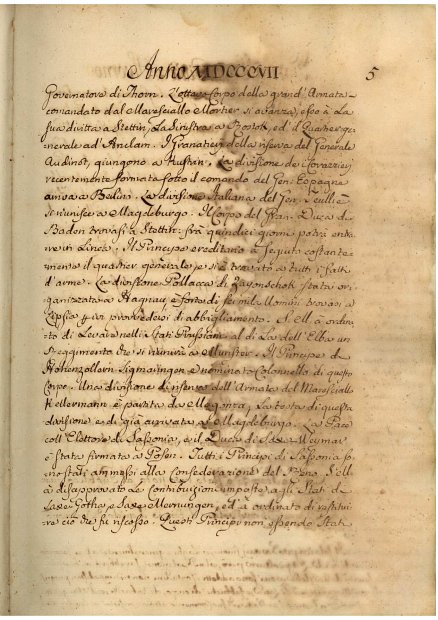 Anno MDCCCVII
5
Governatore di Thorn. L'ottavo corpo della grand' Armata
comandato dal Maresciallo Mortier si avanza, esso à La
sua diritta a Stettin, La sinistra a Rostok, ed il Quartier ge
nerale ad Anclam. I Granatieri della riserva del Generale
Audinot, giungono a Kustrin. La divisione de Corazzieri
recentemente formata sotto il comando del Gen: Espagne
arriva a Berlino. La divisione Italiana del Gen:
si riunisce a Magdeburgo. Il Corpo del Gran Duca di
Baden trovasi a Stettin: frà quindici giorni potrà entra
re in Linea. Il Principe ereditario à seguito costante
mente il quartier generale e si è trovato a tutti i fatti
d'arme. La divisione Pollacca di Zayonschek stata or
ganizzata a Hagnau è forte di sei mila Uomini trovasi a
Lipsia per provvedersi di abbigliamento. S. M. à ordina
to di Levare nelli Stati Prussiani al di La dell'Elba un
Reggimento che si riunirà a Munster. Il Principe de
Hohenzollern Sigmaringen è nominato Colonnello di questo
Corpo. Una divisione di riserva dell'Armata del Maresciallo
Kellermann è partita da Magonza, La testa di questa
divisione è di già arrivata a Magdeburgo. La Pace
coll'Elettore di Sassonia, e il Duca di Saxe Weymar
è stata firmata a Posen. Tutti i Principi di Sassonia so
no stati ammessi alla Confederazione del Reno. S. M.
à disapprovato Le Contribuzioni imposte agli Stati di
Saxe Gotha, e Saxe Meinungen, ed à ordinato di restitui
re ciò che fù riscosso. Questi Principi non essendo Stati